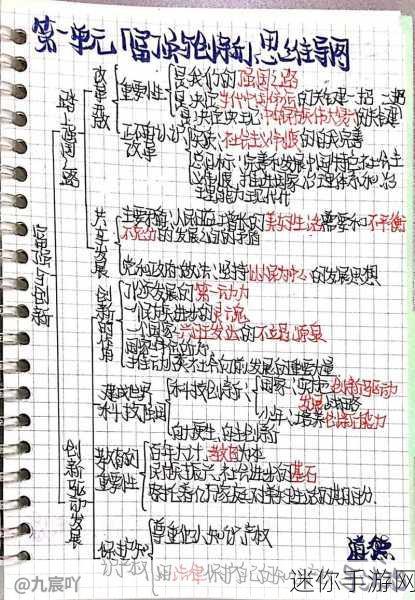 第一单元「富强与创新」思维导图
富强与创新
踏上强国之路
改革开放
重要性
是我们的强国之路
是决定当代中国命运的关键一招
正确认识改革
实质:社会主义制度的自我完善
总目标:完善和发展中国特色社会主义制度、推进国家治理体系和治理能力现代化
共享发展
主要矛盾:人民日益增长的美好生活需要和不平衡
不充分的发展之间的矛盾
党和政府做法:坚持以人民为中心的发展思想
创新的作用
引领发展的第一动力
一个民族进步的灵魂
一个国家兴旺发达的不竭源泉
推动人类社会向前发展的重要力量
创新驱动发展
建设世界科技强国
科技创新
国家:实施创新驱动
发展战略
少年:培养创新能力
教育的重要性
百年大计,教育为本
民族振兴、社会进步的基石
保护知识产权
尊重他人知识产权
用法律保护自己
道德
@九宸吖
迷你手游网